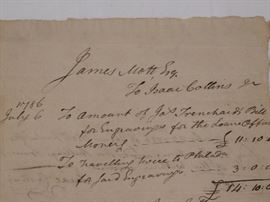 James Mott Esq.
To Isaac Collins Dr
1786
July 6 To Amount of Jas. Trenchard's Bill
for Engravings for the Loan Office
Money £11:10:
To travelling twice to Philada
for said Engravings 3:0:
£14:10: